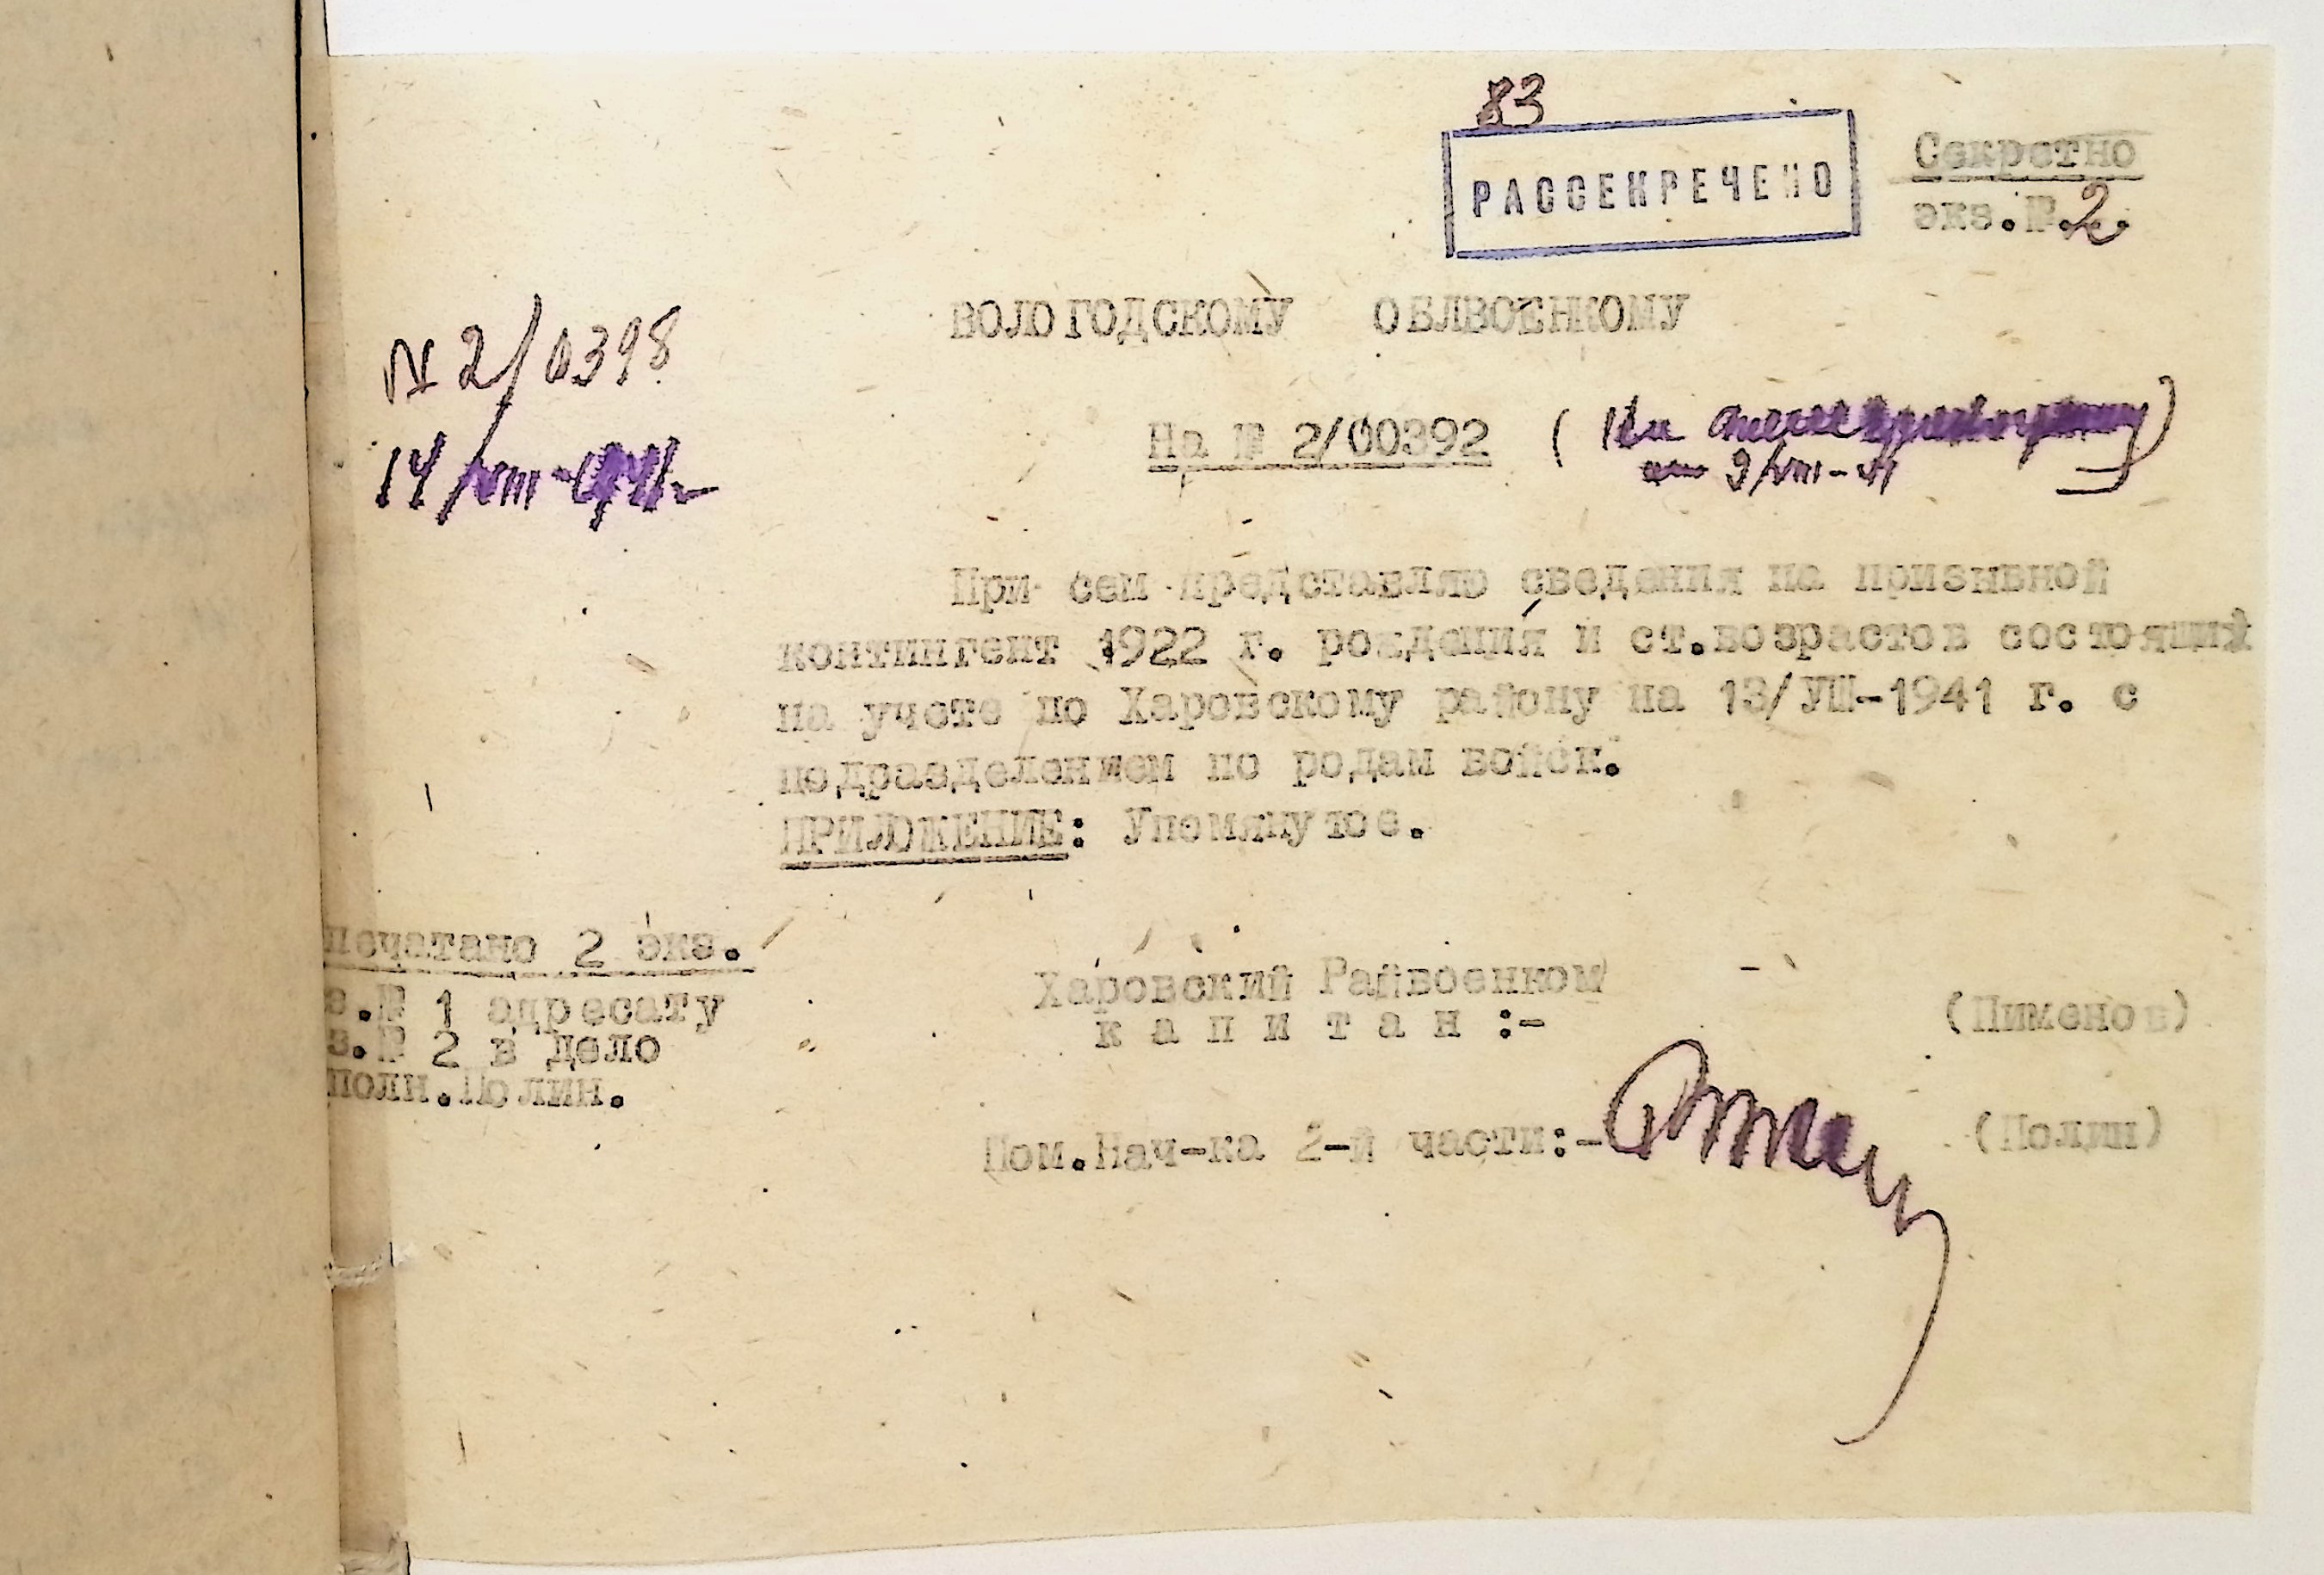 83
РАССЕКРЕЧЕНО
Секретно
экз.№ 2.
ВОЛОГОДСКОМУ ОБЛВОЕНКОМУ
№ 2/0398
14/VIII-1941г
На № 2/00392 (На
от 9/VIII-41)
При сем представляю сведения на призывной
контингент 1922 г. рождения и ст.возрастов состоящих
на учете по Харовскому району на 13/УШ-1941 г. с
подразделением по родам войск.
ПРИЛОЖЕНИЕ: Упомянутое.
печатано 2 экз.
э.№ 1 адресату
э.№ 2 в дело
полн.Полин.
Харовский Райвоенком
капитан :- (Пименов)
Пом.Нач-ка 2-й части:- (Полин)